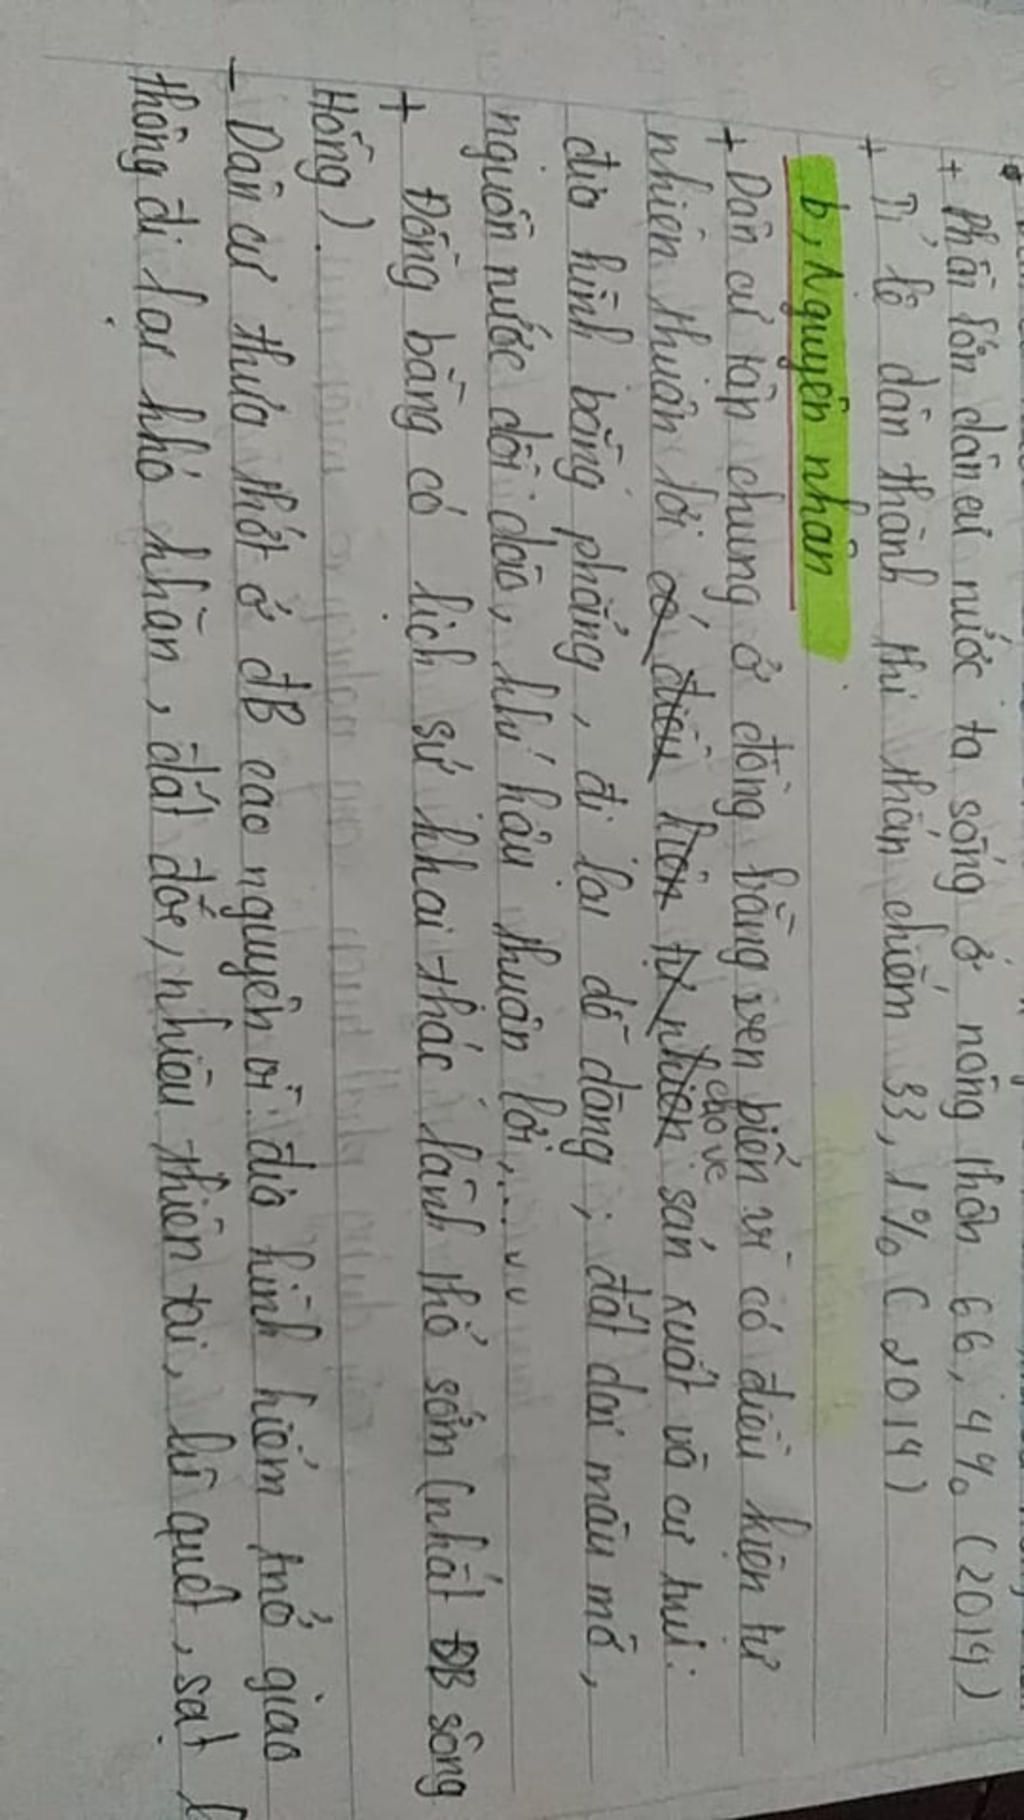 + Phần lớn dân cư nước ta sống ở nông thôn 66,4% (2014)
+ Tỉ lệ dân thành thị thấp chiếm 33,1% (2014)
b, Nguyên nhân
+ Dân cư tập chung ở đồng bằng ven biển vì có điều kiện tự
nhiên thuận lợi có điều kiện tự nhiên cho về sản xuất và cư trú:
địa hình bằng phẳng, đi lại dễ dàng, đất đai màu mỡ,
nguồn nước dồi dào, khí hậu thuận lợi,... v v
+ Đồng bằng có lịch sử khai thác lãnh thổ sớm (nhất ĐB sông
Hồng).
- Dân cư thưa thớt ở ĐB cao nguyên vì: địa hình hiểm trở giao
thông đi lại khó khăn, đất dốc, nhiều thiên tai, lũ quét, sạt